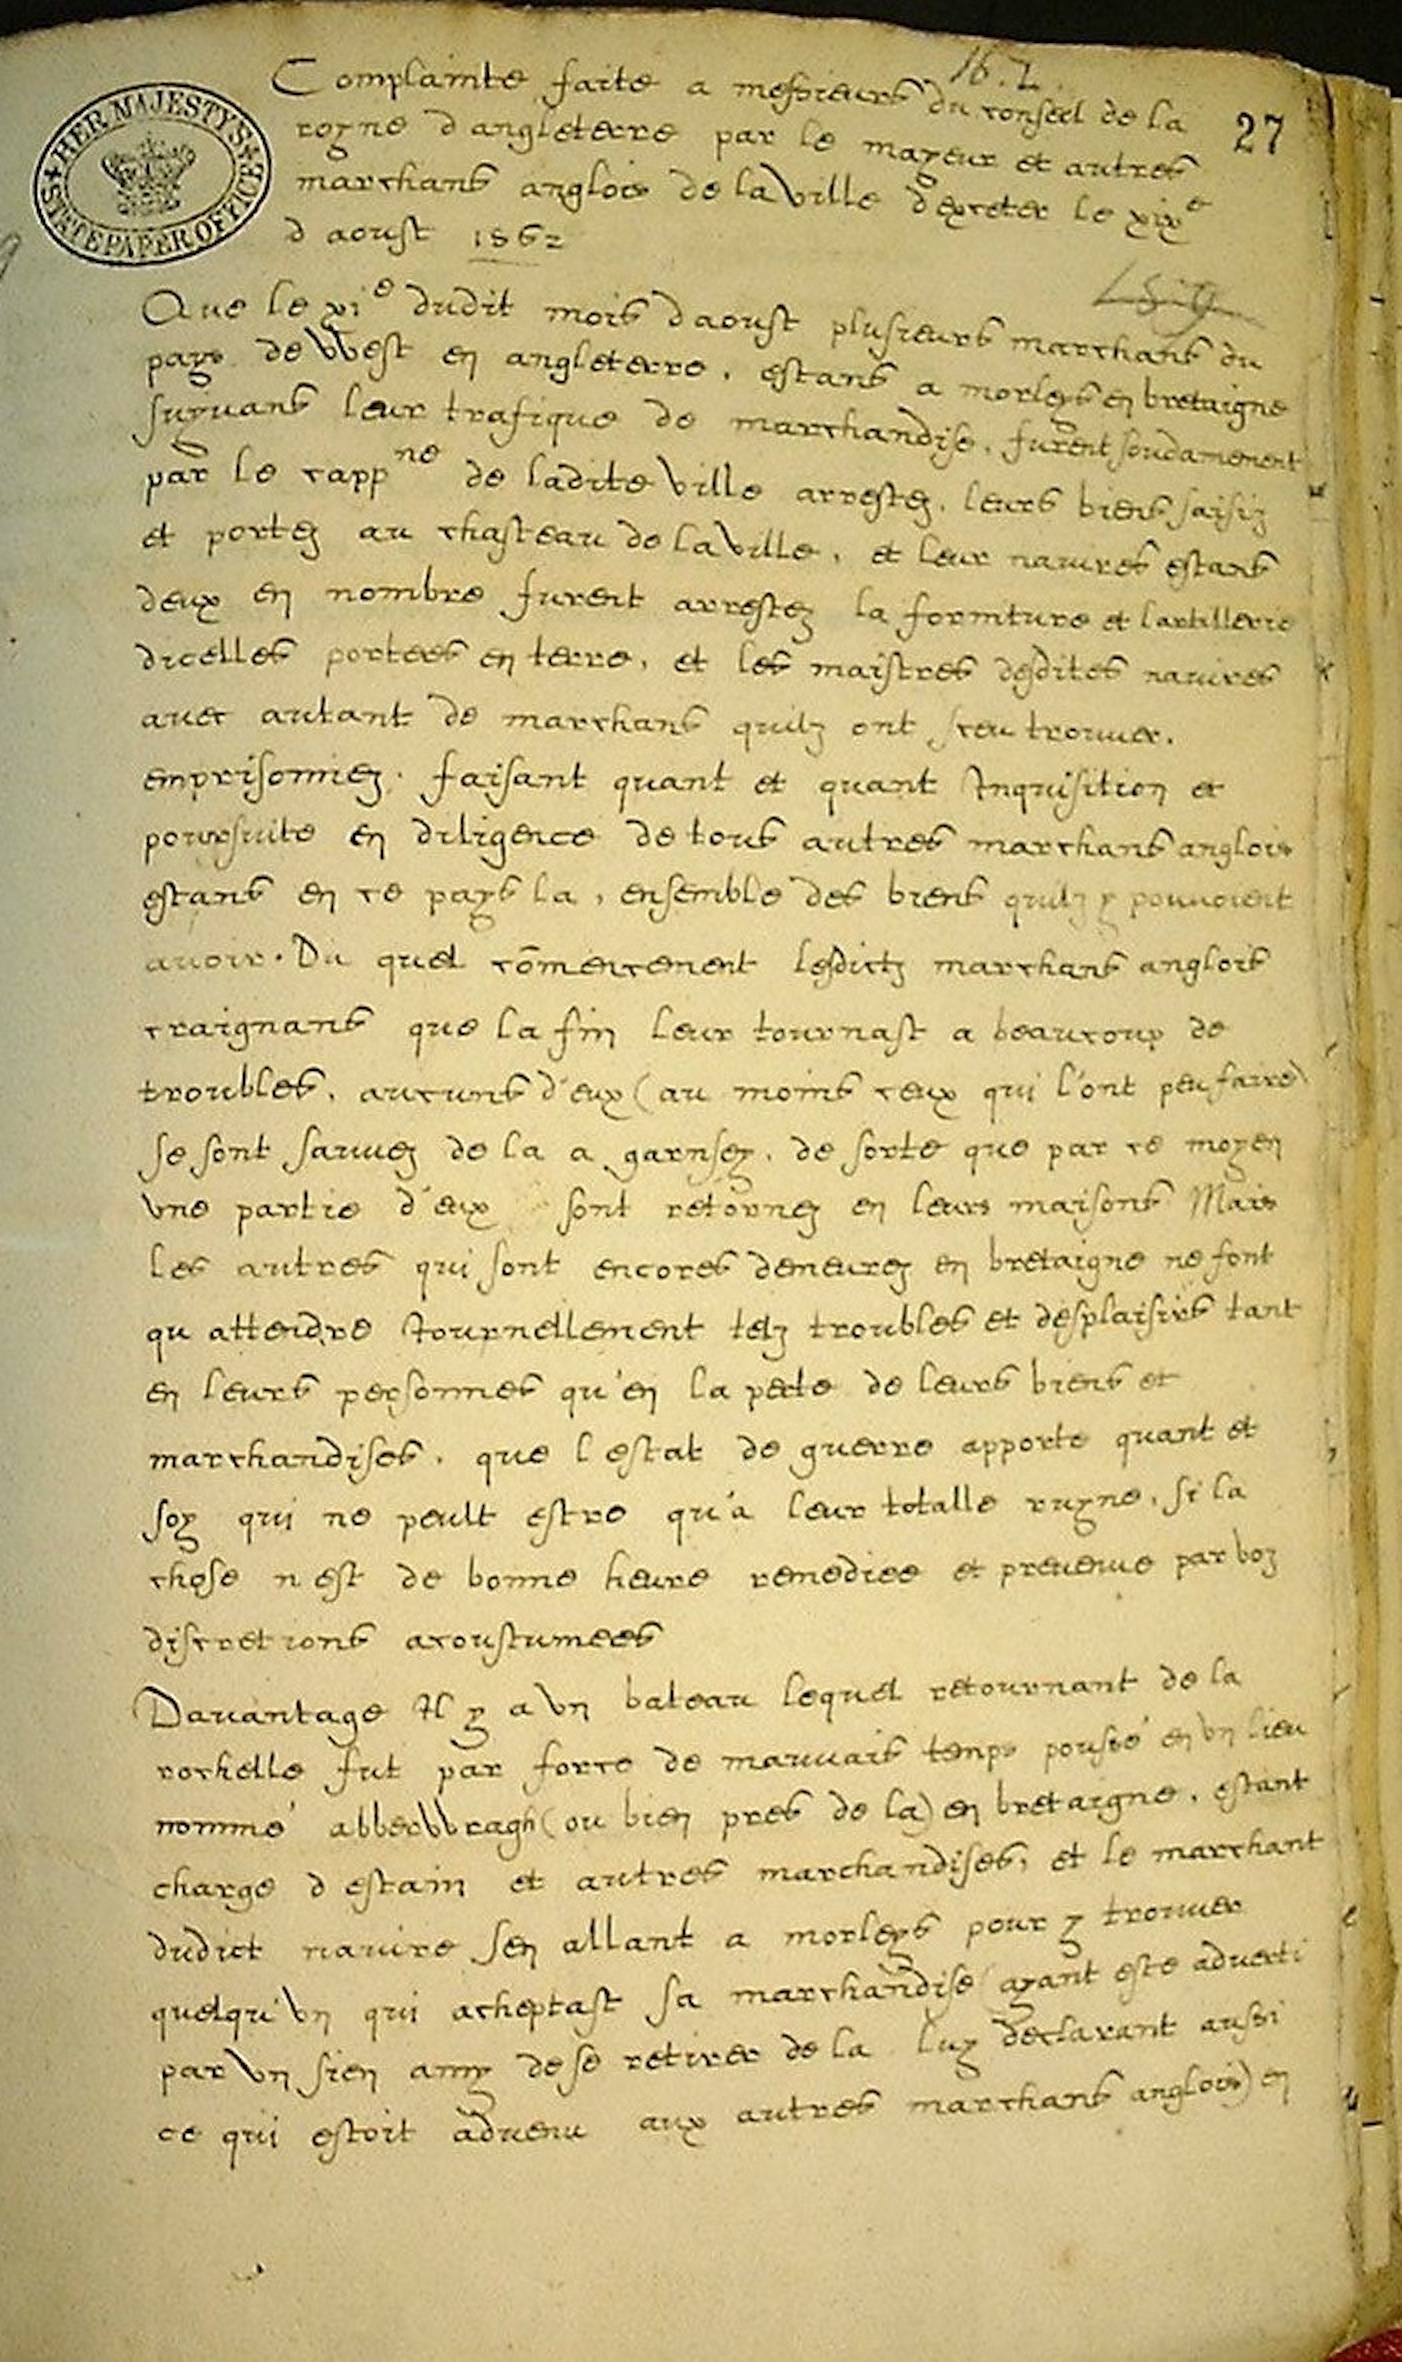 162
27
HER MAJESTY'S
STATE PAPER OFFICE
Complainte faite a messieurs du conseil de la
royne d angleterre par le mayeur et autres
marchans anglois de la ville d'exceter le xixe
d aoust 1562
Que le xie dudit mois d aoust plusieurs marchans du
pays de West en angleterre, estans a morleys en bretaigne
suyvans leur trafique de marchandise, furent soudainement
par le cappne de ladite ville arrestez, leurs biens saisiz
et portez au chasteau de la ville, et leur navires estans
deux en nombre furent arrestez la forniture et l artillerie
dicelles portees en terre, et les maistres desdites navires
avec autant de marchans quilz ont sceu trouver,
emprisonniez. faisant quant et quant Inquisition et
poursuite en diligence de tous autres marchans anglois
estans en ce pays la, ensemble des biens quilz y pouvoient
avoir. Du quel com̄encement lesdictz marchans anglois
craignans que la fin leur tournast a beaucoup de
troubles, aucuns d'eux (au moins ceux qui l'ont peu faire)
se sont sauvez de la a garnsey, de sorte que par ce moyen
vne partie d'eux sont retornez en leurs maisons Mais
les autres qui sont encores demeurez en bretaigne ne font
qu attendre Iournellement telz troubles et desplaisirs tant
en leurs personnes qu'en la perte de leurs biens et
marchandises, que l estat de guerre apporte quant et
soy qui ne peult estre qu'a leur totalle ruyne, si la
chose n est de bonne heure remediee et prevenue par voz
discretions acoustumees
Davantage Il y a vn bateau lequel retournant de la
rochelle fut par force de mauvais temps poussé en vn lieu
nommé abberWragh (ou bien pres de la) en bretaigne, estant
charge d estain et autres marchandises, et le marchant
dudict navire sen allant a morleys pour y trouver
quelqu'vn qui acheptast sa marchandise (ayant este adverti
par vn sien amy de se retirer de la luy declarant aussi
ce qui estoit advenu aux autres marchans anglois) en